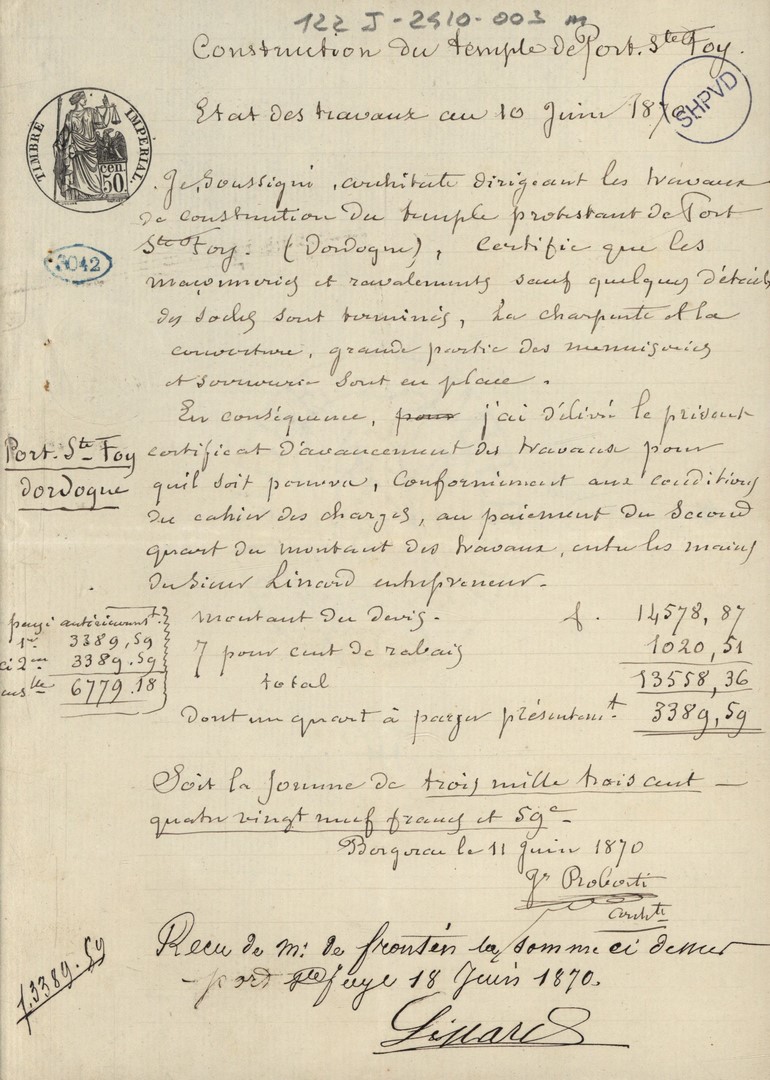 122 J - 2410 - 003 m
Construction du temple de Port. Ste Foy.
SHPVD
Etat des travaux au 10 Juin 1870
TIMBRE IMPERIAL.
cen. 50
Je, Soussigné, architecte dirigeant les travaux
de construction du temple protestant de Port
Ste Foy. (Dordogne), Certifie que les
maçonneries et ravalements sauf quelques détails
des socles sont terminés, la charpente et la
couverture, grande partie des menuiseries
et serrurerie sont en place.
3042
En conséquence, pour j'ai délivré le présent
certificat d'avancement des travaux pour
qu'il soit pourvu, Conformément aux conditions
du cahier des charges, au paiement du Second
quart du montant des travaux, entre les mains
du Sieur Linard entrepreneur.
Port. Ste Foy
dordogne
montant du devis. f. 14578,87
7 pour cent de rabais 1020,51
total 13558,36
dont un quart à payer présentemt. 3389,59
payé antérieuremt.
1er 3389,59
ci 2me 3389.59
ensble 6779.18
Soit la somme de trois mille trois cent
quatre vingt neuf francs et 59c
Bergerac le 11 Juin 1870
archte
Recu de mr de frontén la somme ci dessus
port ste foye 18 Juin 1870.
Linard
f. 3389.59